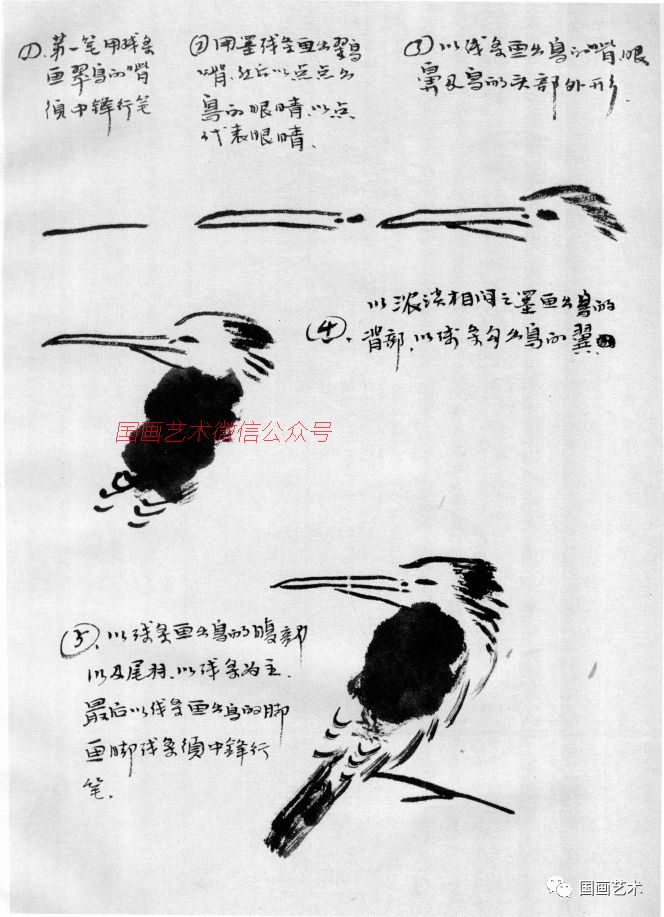 ①.第一笔用线条
画翠鸟的嘴
须中锋行笔
②用墨线条画出翠鸟
嘴,然后以点点出
鸟的眼睛.以点
代表眼睛.
③以线条画出鸟的嘴,眼
鼻及鸟的头部外形.
④.以浓淡相间之墨画出鸟的
背部,以线条勾出鸟的翼
国画艺术微信公众号
⑤.以线条画出鸟的腹部
以及尾羽.以线条为主.
最后以线条画出鸟的脚
画脚线条须中锋行
笔.
国画艺术